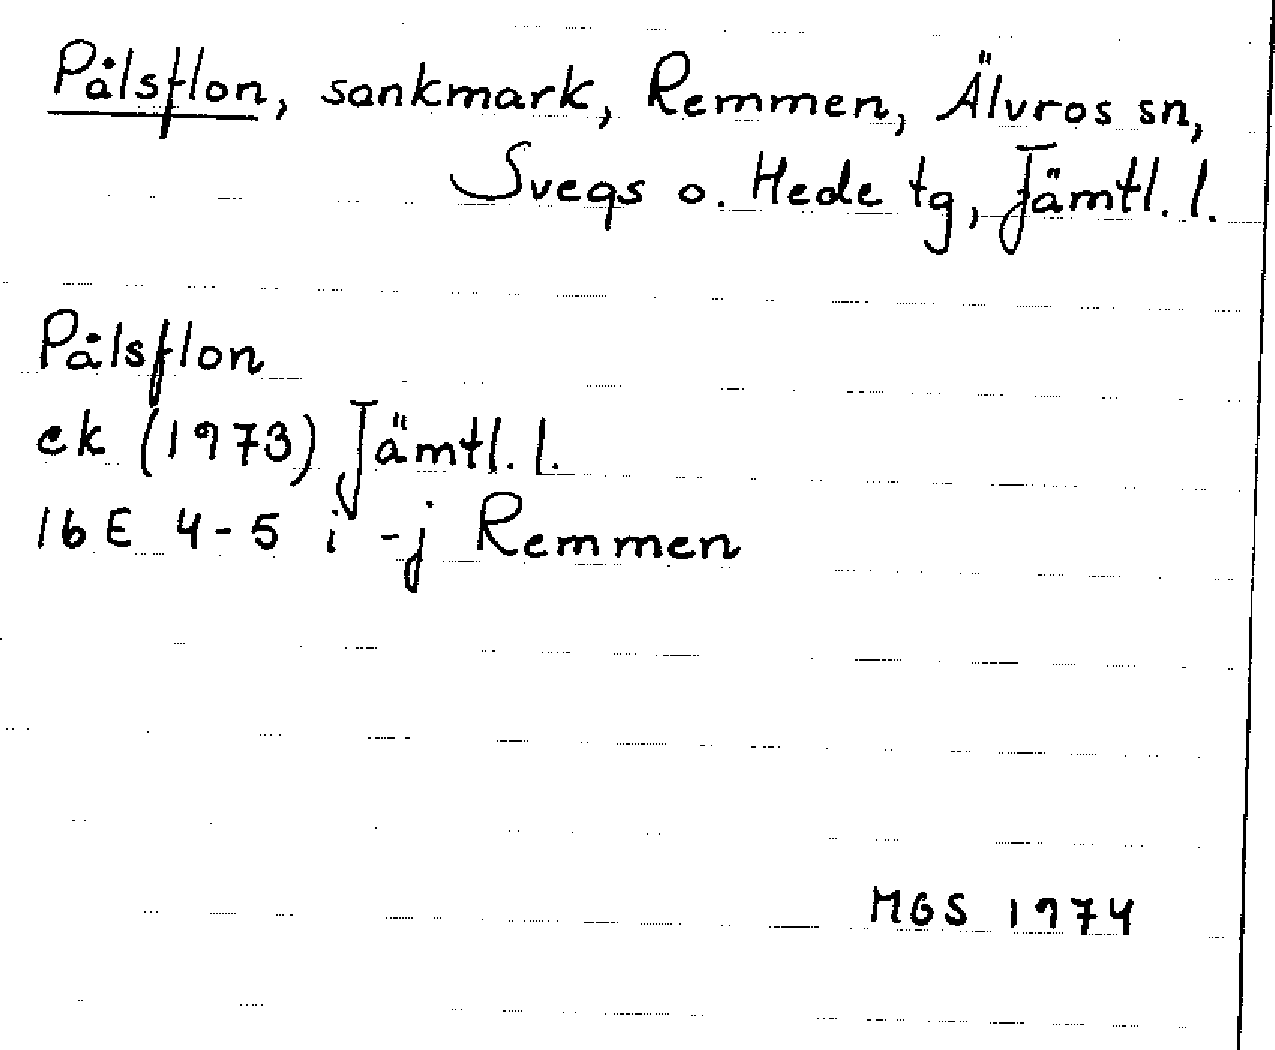 Pålsflon, sankmark, Remmen, Älvros sn,
Svegs o. Hede tg, Jämtl. l.
Pålsflon
ek (1973) Jämtl. l.
16E 4-5 i-j Remmen
MGS 1974